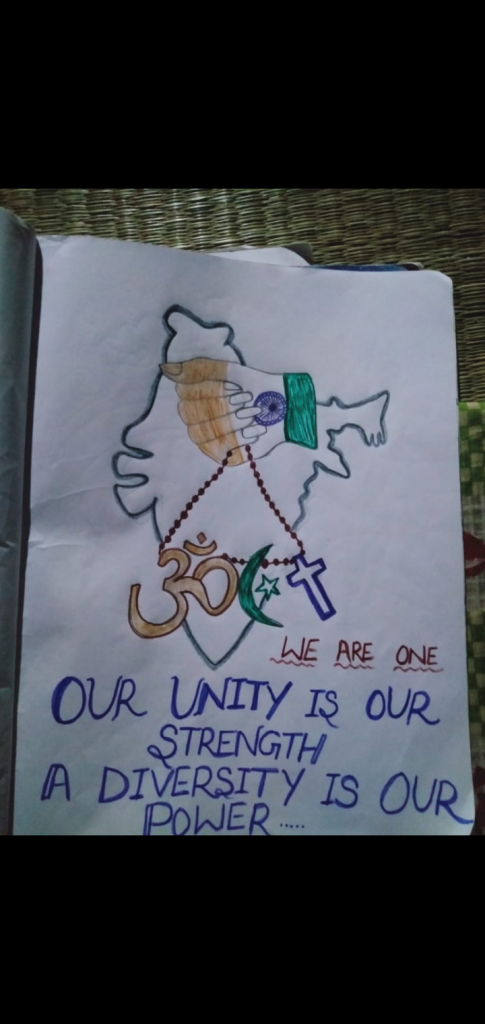 WE ARE ONE
OUR UNITY IS OUR
STRENGTH
A DIVERSITY IS OUR
POWER.....